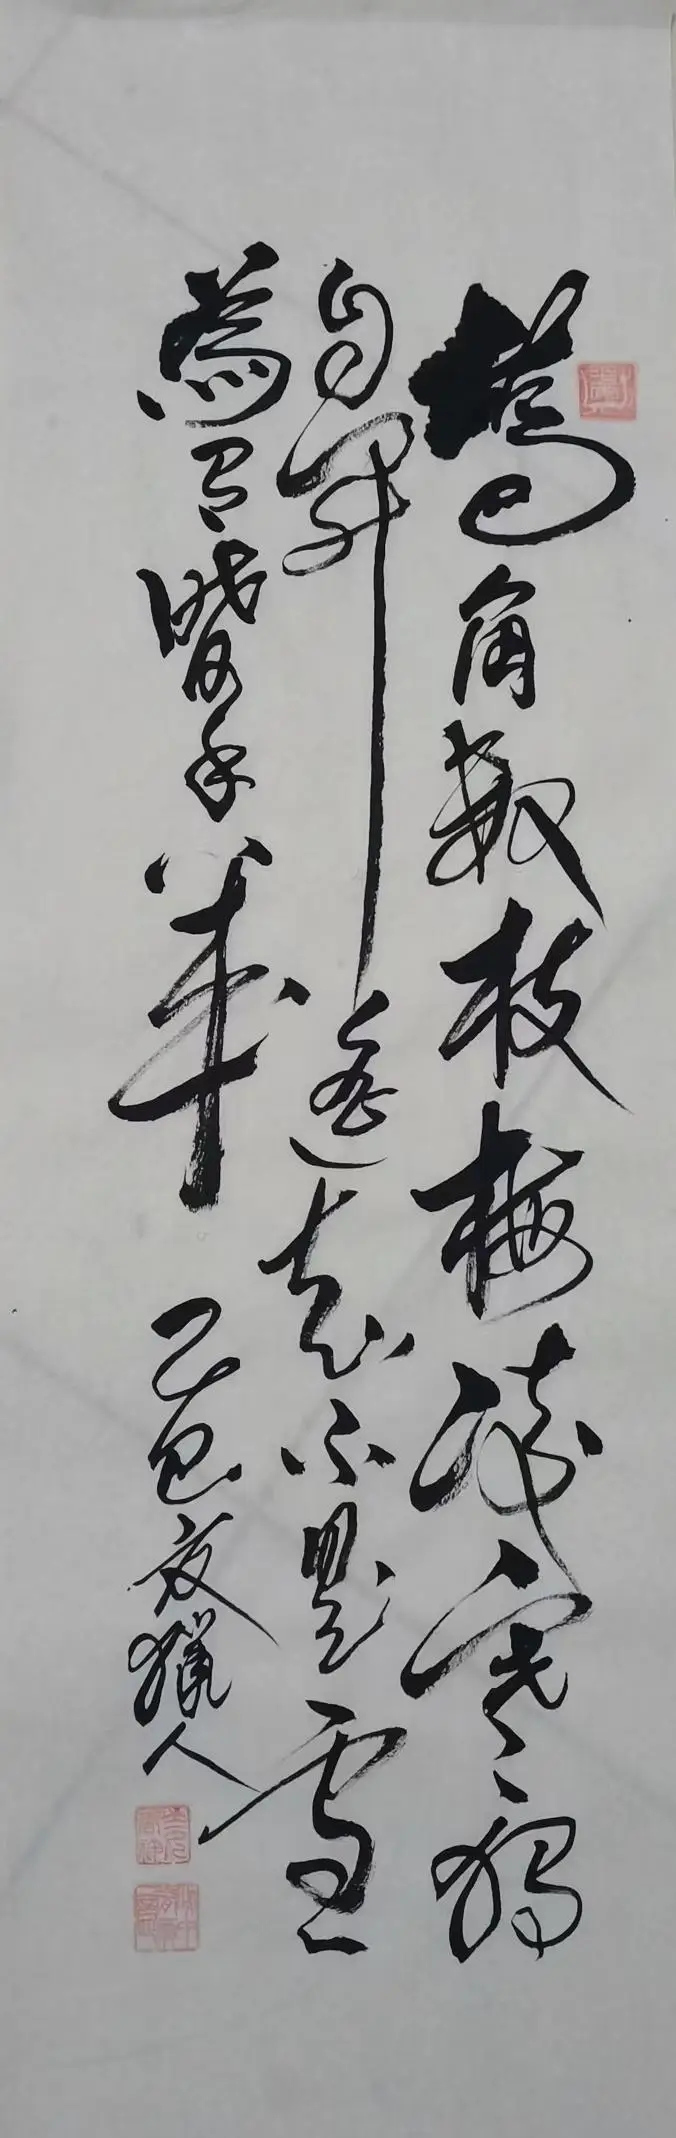 墙角数枝梅凌寒独
自开遥知不是雪
为有暗香来
乙巳夜猎人